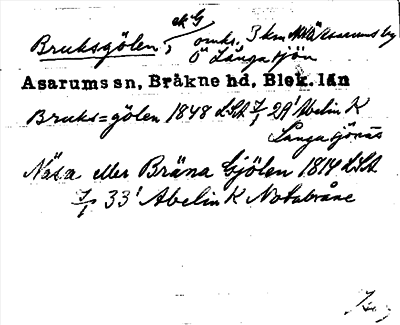 ek G
Bruksgölen, omkr. 3 km NNÄ Asarums by
Ö Långasjön
Asarums sn, Bräkne hd, Blek. län
Bruks=gölen 1848 LSA 7/1 29' Abelin K
Långasjönäs
Näsa eller Bräna Gjölen 1814 LSA
7/1 33' Abelin K Notabråne